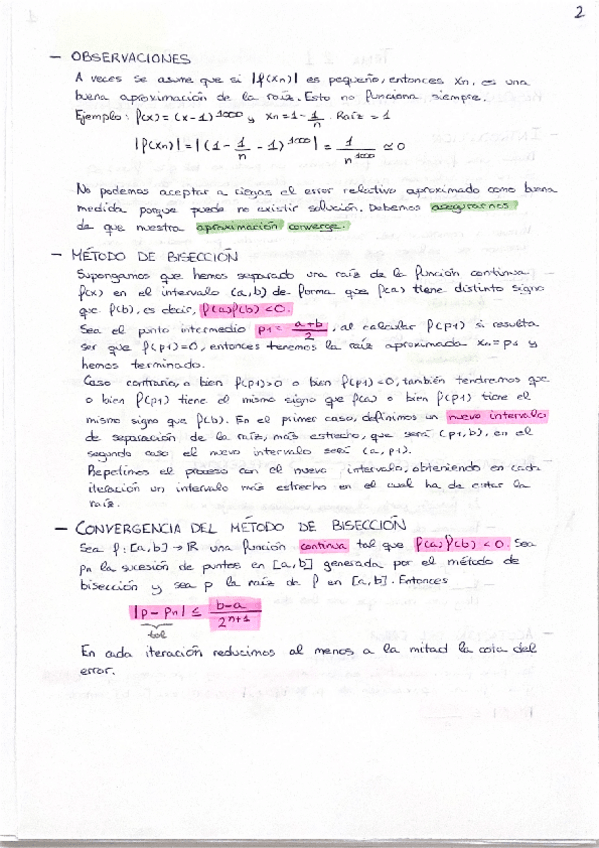 2
- OBSERVACIONES
A veces se asume que si |f(xn)| es pequeño, entonces xn, es una
buena aproximación de la raíz. Esto no funciona siempre.
Ejemplo: f(x) = (x-1)^1000 y xn = 1 - 1/n. Raíz = 1
|f(xn)| = |(1 - 1/n - 1)^1000| = 1/n^1000 ≃ 0
No podemos aceptar a ciegas el error relativo aproximado como buena
medida porque puede no existir solución. Debemos asegurarnos
de que nuestra aproximación converge.
- MÉTODO DE BISECCIÓN
Supongamos que hemos separado una raíz de la función continua
f(x) en el intervalo (a,b) de forma que f(a) tiene distinto signo
que f(b), es decir, f(a)f(b) < 0.
Sea el punto intermedio p1 = a+b/2, al calcular f(p1) si resulta
ser que f(p1)=0, entonces tenemos la raíz aproximada xn = p1 y
hemos terminado.
Caso contrario, o bien f(p1)>0 o bien f(p1)<0, también tendremos que
o bien f(p1) tiene el mismo signo que f(a) o bien f(p1) tiene el
mismo signo que f(b). En el primer caso, definimos un nuevo intervalo
de separación de la raíz, más estrecho, que será (p1,b), en el
segundo caso el nuevo intervalo será (a,p1).
Repetimos el proceso con el nuevo intervalo, obteniendo en cada
iteración un intervalo más estrecho en el cual ha de estar la
raíz.
- CONVERGENCIA DEL MÉTODO DE BISECCIÓN
Sea f: [a,b] → ℝ una función continua tal que f(a)f(b) < 0. Sea
pn la sucesión de puntos en [a,b] generada por el método de
bisección y sea p la raíz de f en [a,b]. Entonces
|p - pn| ≤ b-a/2^n+1
tol
En cada iteración reducimos al menos a la mitad la cota del
error.